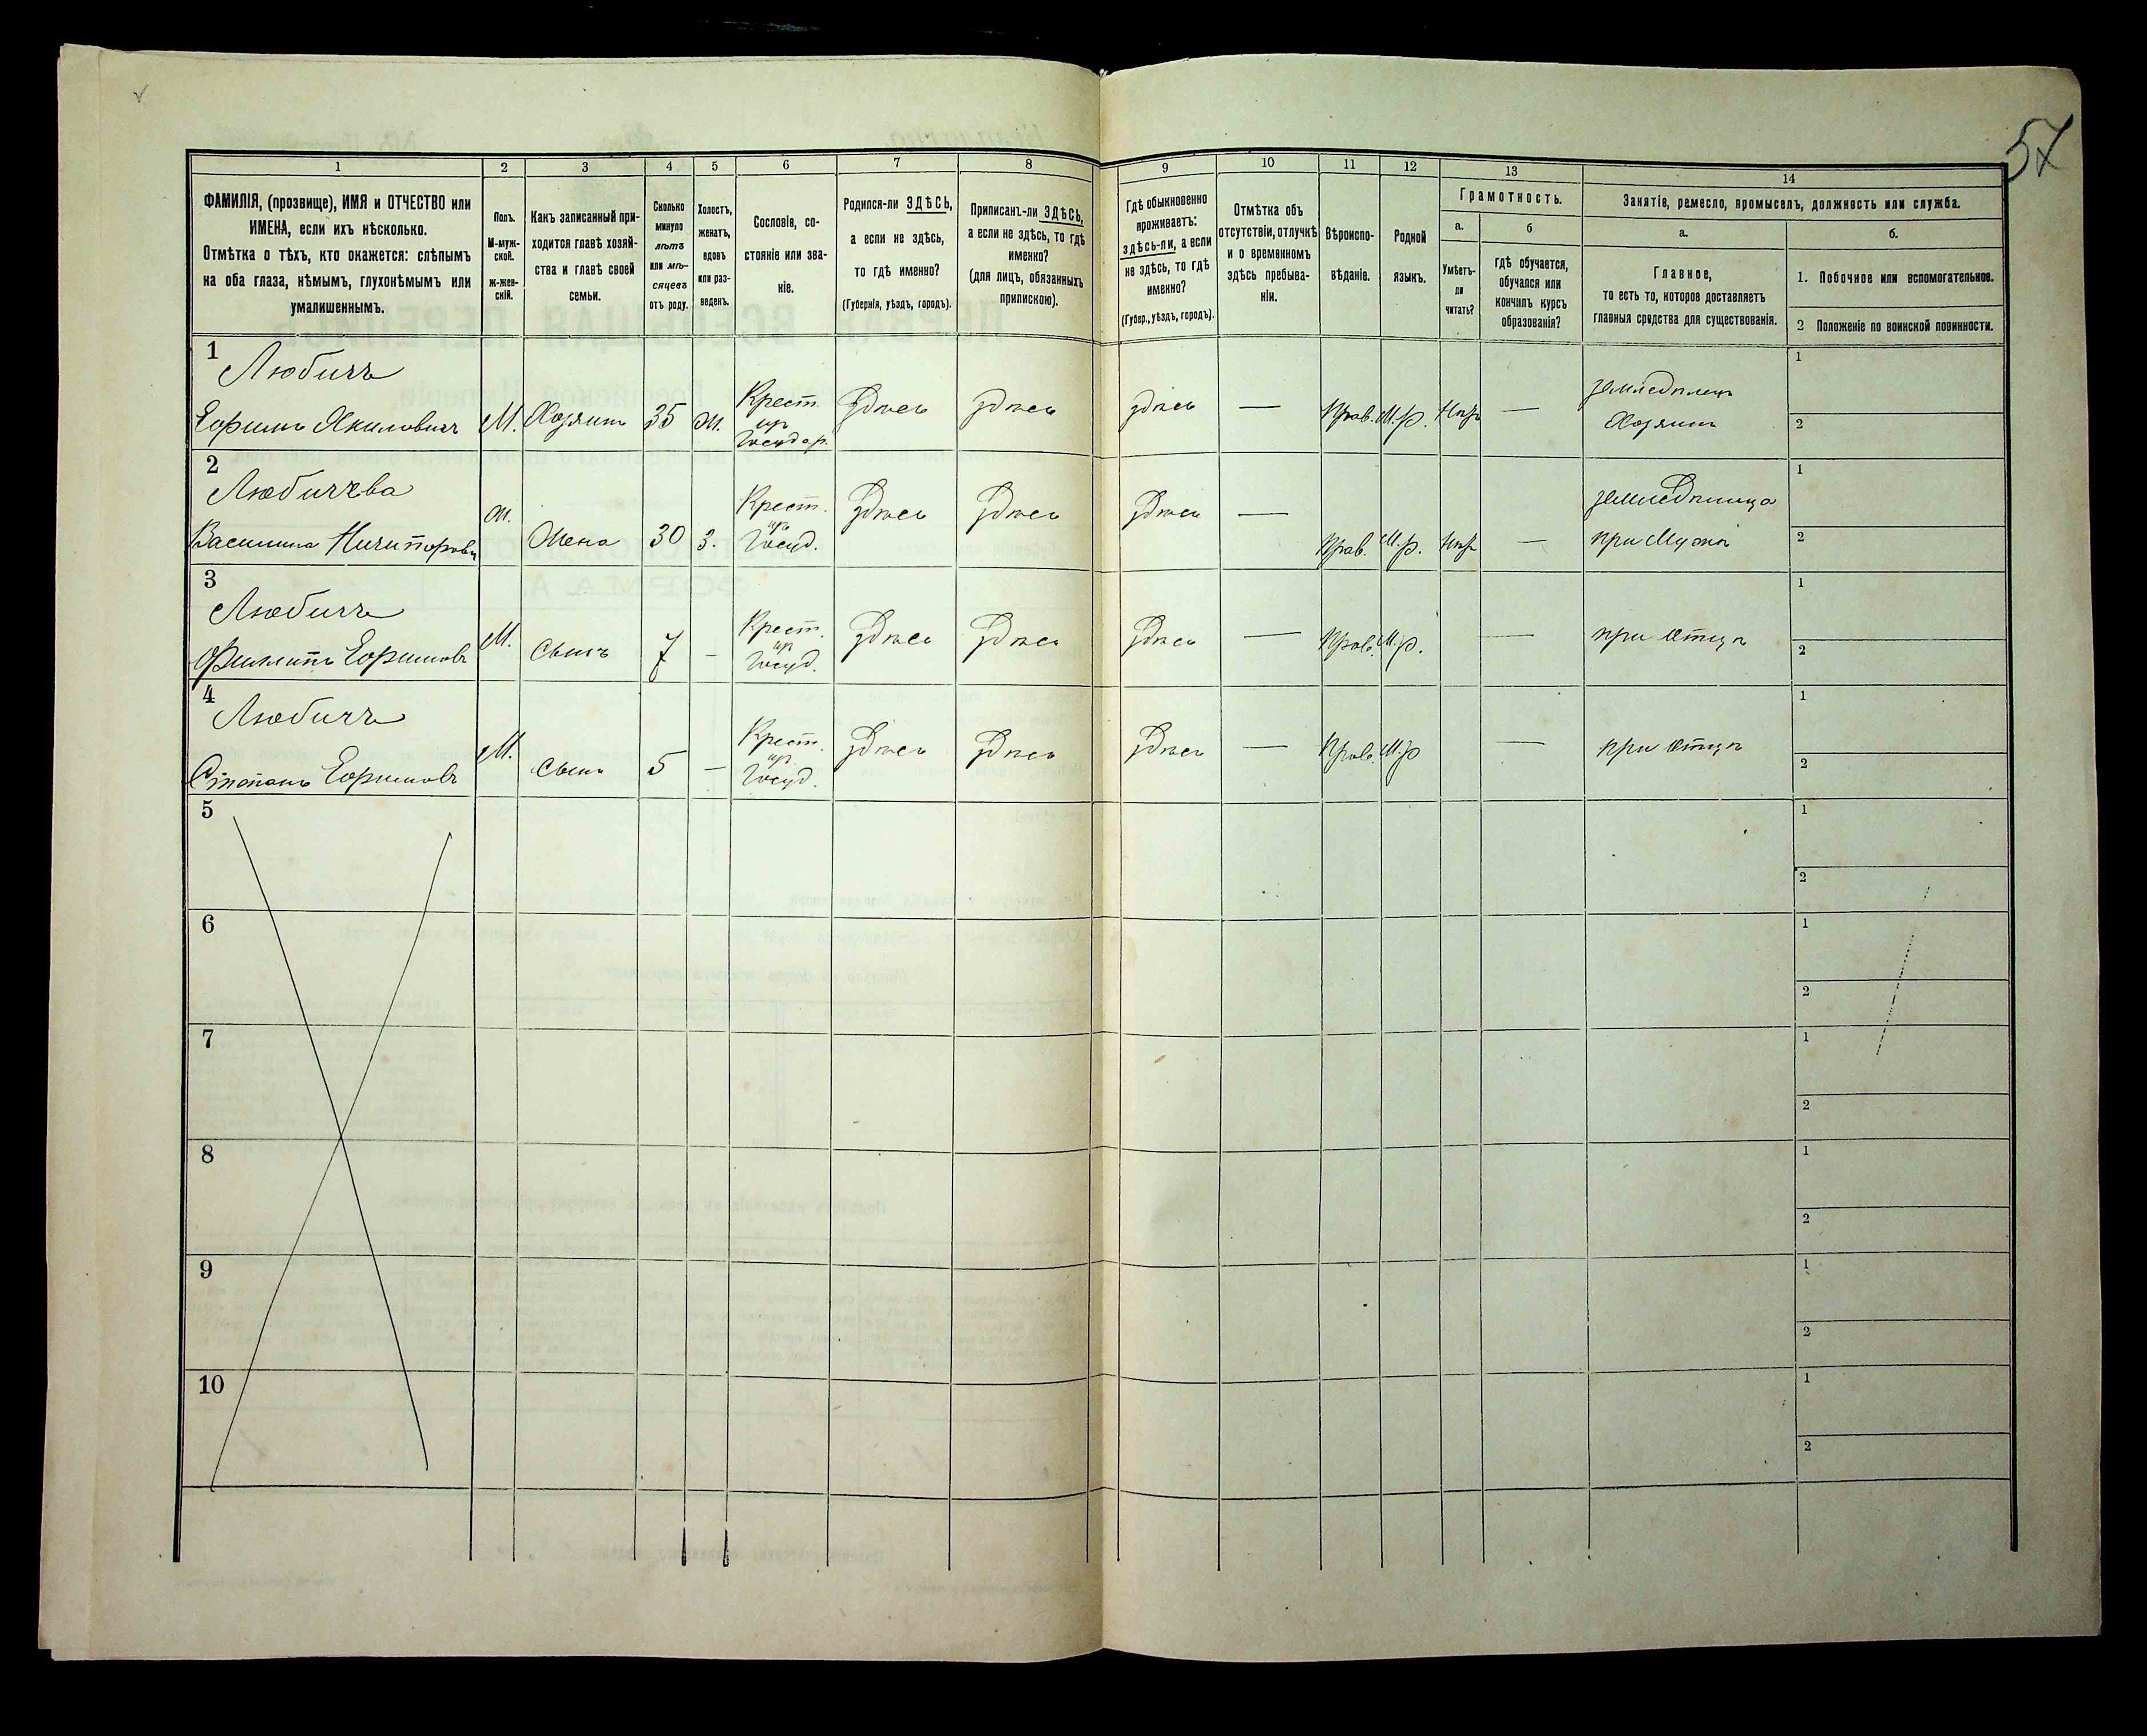 57
1
2
3
4
5
6
7
8
9
10
11
12
13
14
ФАМИЛІЯ, (прозвище), ИМЯ и ОТЧЕСТВО или
ИМЕНА, если ихъ нѣсколько.
Отмѣтка о тѣхъ, кто окажется: слѣпымъ
на оба глаза, нѣмымъ, глухонѣмымъ или
умалишеннымъ.
Полъ.
М-муж-
ской.
ж-жен-
скій.
Какъ записанный при-
ходится главѣ хозяй-
ства и главѣ своей
семьи.
Сколько
минуло
лѣтъ
или мѣ-
сяцевъ
отъ роду.
Холостъ,
женатъ,
вдовъ
или раз-
веденъ.
Сословіе, со-
стояніе или зва-
ніе.
Родился-ли ЗДѢСЬ,
а если не здѣсь,
то гдѣ именно?
(Губернія, уѣздъ, городъ).
Приписанъ-ли ЗДѢСЬ,
а если не здѣсь, то гдѣ
именно?
(для лицъ, обязанныхъ
припискою).
Гдѣ обыкновенно
проживаетъ:
здѣсь-ли, а если
не здѣсь, то гдѣ
именно?
(Губер., уѣздъ, городъ).
Отмѣтка объ
отсутствіи, отлучкѣ
и о временномъ
здѣсь пребыва-
ніи.
Вѣроиспо-
вѣданіе.
Родной
языкъ.
Грамотность.
а.
Умѣетъ-
ли
читать?
б
гдѣ обучается,
обучался или
кончилъ курсъ
образованія?
Занятіе, ремесло, промыселъ, должность или служба.
а.
Главное,
то есть то, которое доставляетъ
главныя средства для существованія.
б.
1. Побочное или вспомогательное.
2 Положеніе по воинской повинности.
1
Любичъ
Ефимъ Якиловичъ М. Хозяинъ 35 ж. Крест. из Государ. здѣсь здѣсь здѣсь — Прав. М.р. Нѣтъ — земледѣлецъ Хозяинъ
1
2
2
Любичева
ж. Жена 30 З. Крест. из Госуд. здѣсь здѣсь здѣсь — Прав. М.р. Нѣтъ — земледѣлица при Мужѣ
1
2
3
Любичъ
Филипъ Ефимовъ М. Сынъ 7 – Крест. из Госуд. здѣсь здѣсь здѣсь — Прав. М.р. — при Отцѣ
1
2
4
Любичъ
Степанъ Ефимовъ М. Сынъ 5 – Крест. из Госуд. здѣсь здѣсь здѣсь — Прав. М.р — при Отцѣ
1
2
5
1
2
6
1
2
7
1
2
8
1
2
9
1
2
10
1
2